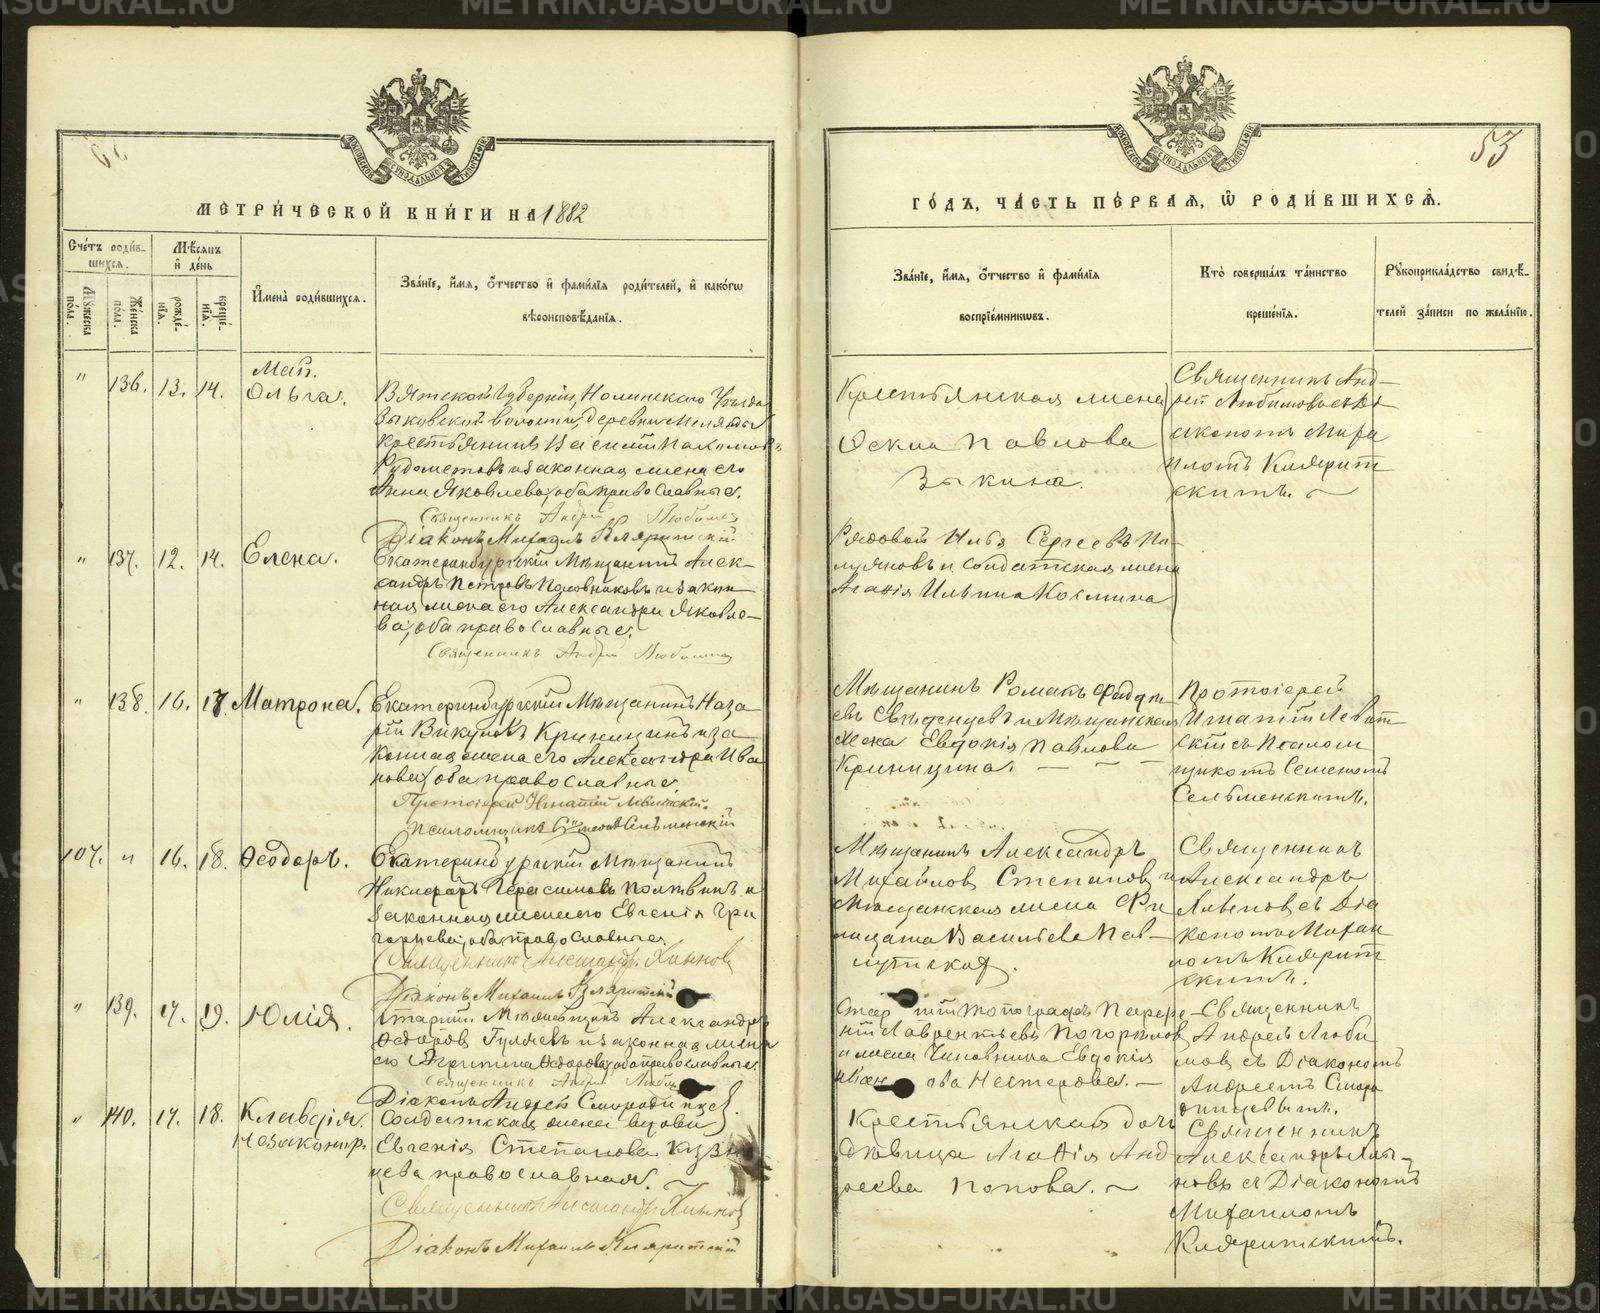 METRIKI.GASO-URAL.RU
МЕТРИ́ЧЕСКОЙ КНИ́ГИ НА 1882
Сче́тъ роди́в-
шихся.
Мѣсяцъ
и҆ де́нь
Мꙋжеска
по́ла.
Же́нска
по́ла.
рожде́-
нїѧ.
креще́-
нїѧ.
И҆мена̀ роди́вшихся.
Зва́нїе, и҆́мѧ, ѻ҆́тчество и҆ фами́лїѧ роди́телей, и҆ како́гѡ
вѣроисповѣ́данїѧ.
Май.
" 136. 13. 14. Ольга.
Вятской Губерніи, Нолинскаго Уѣзда
Зыковской волости, деревни
крестьянинъ Василій Пахомовъ
Рудометовъ и законная жена его
Анна Яковлева, оба православные.
Священникъ Андрей Любимовъ
Діаконъ Михаилъ Кляритскій
" 137. 12. 14. Елена.
Екатеринбургскій Мѣщанинъ Алек-
сандръ Петровъ Половниковъ и закон-
ная жена его Александра Яковле-
ва, оба православные.
Священникъ Андрей Любимовъ
" 138. 16. 17. Матрона.
Екатеринбургскій Мѣщанинъ Наза-
рій Викуловъ Криницинъ и за
конная жена его Александра Ива
нова, оба православные.
Протоіерей Игнатій Левитскій.
Псаломщикъ Симеонъ Сельменскій
107. " 16. 18. Ѳеодоръ.
Екатеринбургскій Мѣщанинъ
Никифоръ Герасимовъ и
законная жена его Евгенія Гри
горьева, оба православные.
Священникъ Александръ Хлыновъ
Діаконъ Михаилъ Кляритскій
" 139. 17. 19. Юлія.
Старшій Александръ
Ѳедоровъ Гуляевъ и законная жена
его Агрипина Ѳедорова, оба православные.
Священникъ Андрей Любимовъ
Діаконъ Андрей Смородинцевъ.
" 140. 17. 18. Клавдія.
незаконнр.
Солдатская жена вдова
Евгенія Степанова Кузне
цова православная.
Священникъ Александръ Хлыновъ
Діаконъ Михаилъ Кляритскій
53
ГО́ДЪ, ЧА́СТЬ ПЕ́РВАѦ, Ѽ РОДИ́ВШИХСѦ.
Зва́нїе, и҆́мѧ, ѻ҆́тчество и҆ фами́лїѧ
воспрїе́мникѡвъ.
Кто̀ соверша́лъ та́инство
креще́нїѧ.
Рꙋкоприкла́дство свидѣ́-
телей за́писи по жела́нїю.
Крестьянская жена
Павлова
Зыкина.
Священникъ Анд-
рей Любимовъ съ Ді
акономъ Миха
иломъ Клярит
скимъ.
Рядовой Илья Сергеевъ По-
луяновъ и солдатская жена
Агаѳія Ильина Космина
Мѣщанинъ Романъ Фадде
евъ и Мѣщанская
жена Евдокія Павлова
Криницина.
Протоіерей
Игнатій Левит
скій съ Псалом
щикомъ Семеномъ
Сельменскимъ.
Мѣщанинъ Александръ
Михайловъ Степановъ и
Мѣщанская жена Фи
лицата Васильева Пав-
луцкая.
Священникъ
Александръ
Хлыновъ съ Діа
кономъ Михаи
ломъ Клярит
скимъ.
Старшій топографъ
Лаврентьевъ Погорѣлов
и жена Чиновника Евдокія
Нестерова.
Священникъ
Андрей Люби
мовъ съ Діакономъ
Андреемъ Сморо
динцевымъ.
Крестьянская дочь
дѣвица Агаѳія Анд
реева Попова.
Священникъ
Александръ Хлы-
новъ съ Діакономъ
Михаиломъ
Кляритскимъ.
METRIKI.GASO-URAL.RU